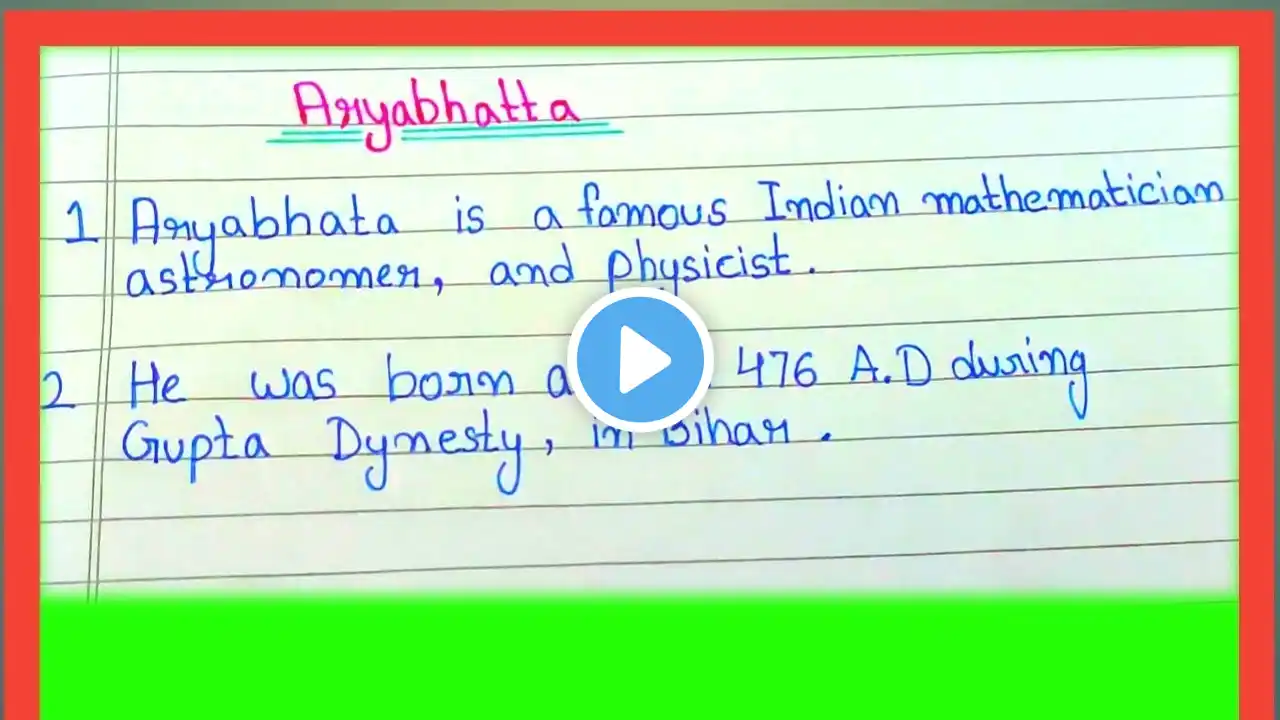 Aryabhatta
1 Aryabhata is a famous Indian mathematician
astronomer, and physicist.
2 He was born 476 A.D during
Gupta Dynesty, in Bihar.